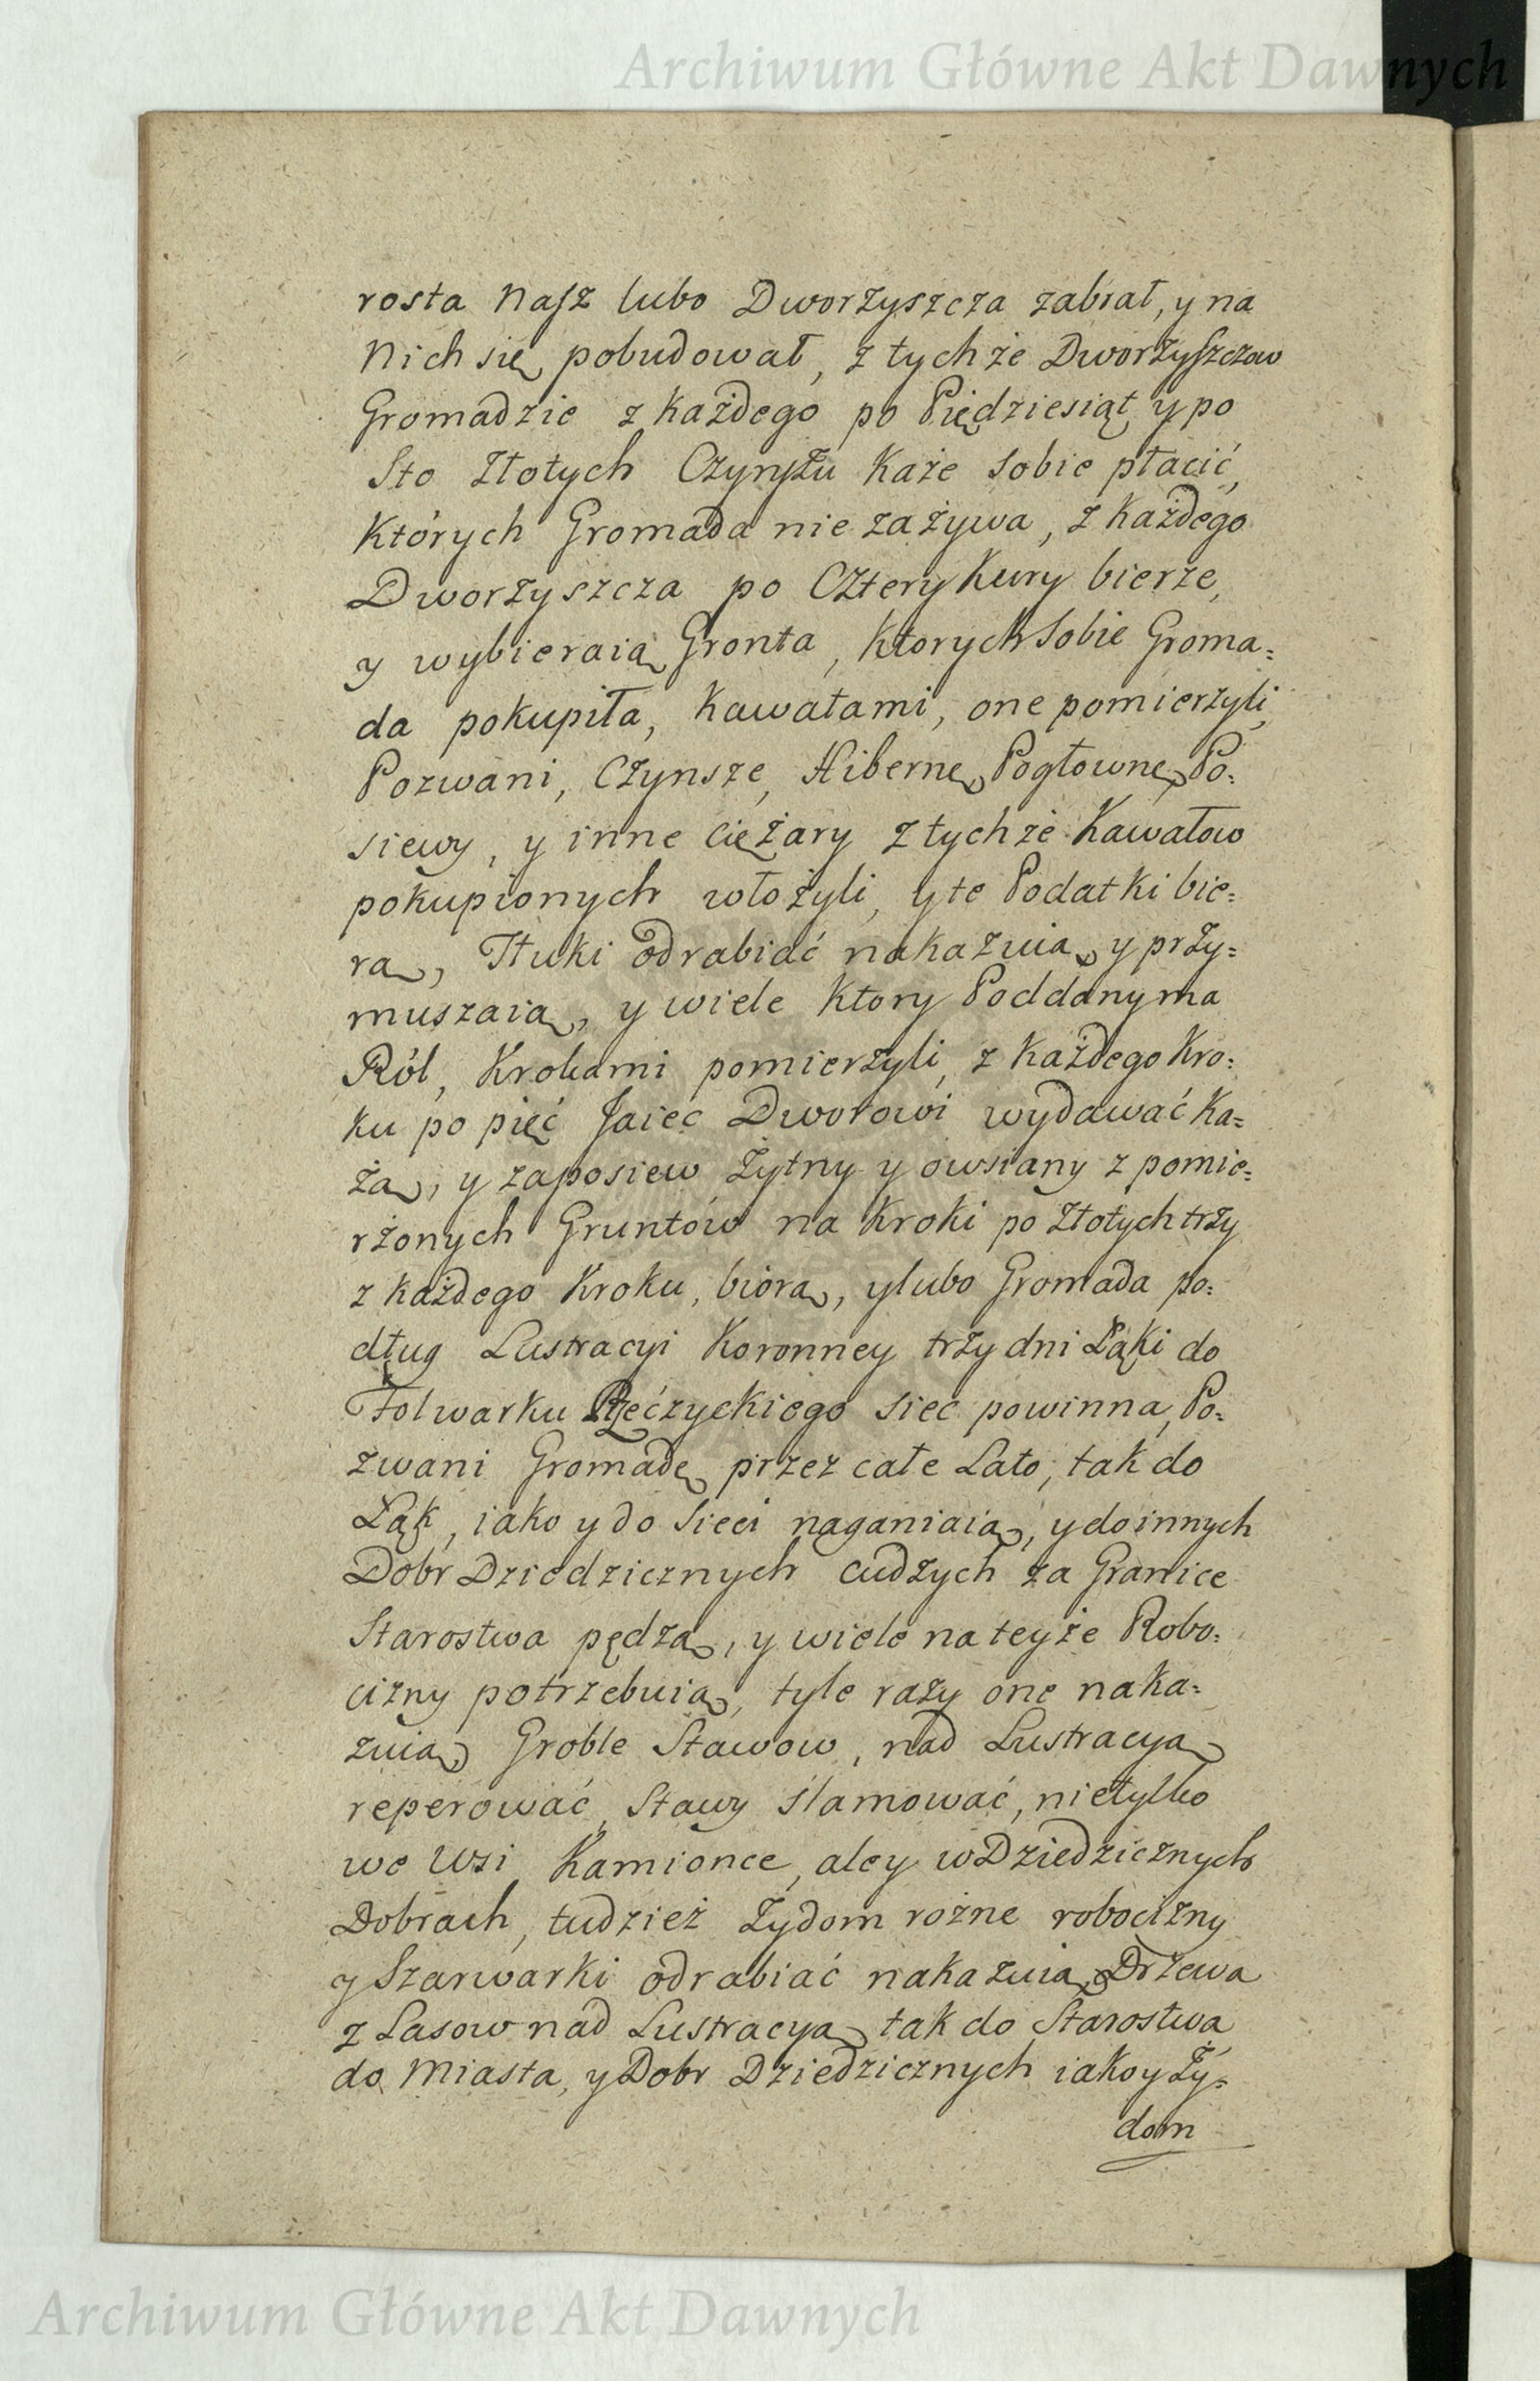 Archiwum Główne Akt Dawnych
rosta Nasz lubo Dworzyszcza zabrał, y na
Nich się pobudował, z tychże Dworzyszczow
Gromadzie z każdego po Piędziesiąt y po
Sto Złotych Czynszu Każe sobie płacić,
których Gromada nie zażywa, z każdego
Dworzyszcza po Cztery Kury bierze,
y wybieraią Gronta, ktorych sobie Groma=
da pokupiła, kawałami, one pomierzyli
Pozwani, Czynsze, Hibernę, Pogłowne, Po=
siewy, y inne Ciężary z tychże Kawałow
pokupionych włożyli, y te Podatki bie=
rą, Tłuki odrabiać nakazuią, y przy=
muszaią, y wiele ktory Poddany ma
Ról, Krokami pomierzyli, z każdego Kro=
ku po pięć Jaiec Dworowi wydawać Ka=
żą, y zaposiew Żytny y owsiany z pomie=
rżonych Gruntów na Kroki po Złotych trzy
z każdego Kroku, biorą, y lubo Gromada po=
dług Lustracyi Koronney trzy dni Łąki do
Folwarku Rzęczyckiego siec powinna, Po=
zwani Gromadę przez całe Lato, tak do
Łąk, iako y do Sieci naganiaią, y do innych
Dobr Dziedzicznych cudzych za Granice
Starostwa pędzą, y wiele na teyże Robo=
cizny potrzebuią, tyle razy one naka=
zuią, Groble Stawow, nad Lustracyą
reperować, Stawy szlamować, nietylko
we Wsi Kamionce, ale y w Dziedzicznych
Dobrach, tudzież Żydom rożne robocizny
y Szarwarki odrabiać nakazuią, Drzewa
z Lasow nad Lustracyą tak do Starostwa
do Miasta, y Dobr Dziedzicznych iako y Ży=
dom
Archiwum Główne Akt Dawnych